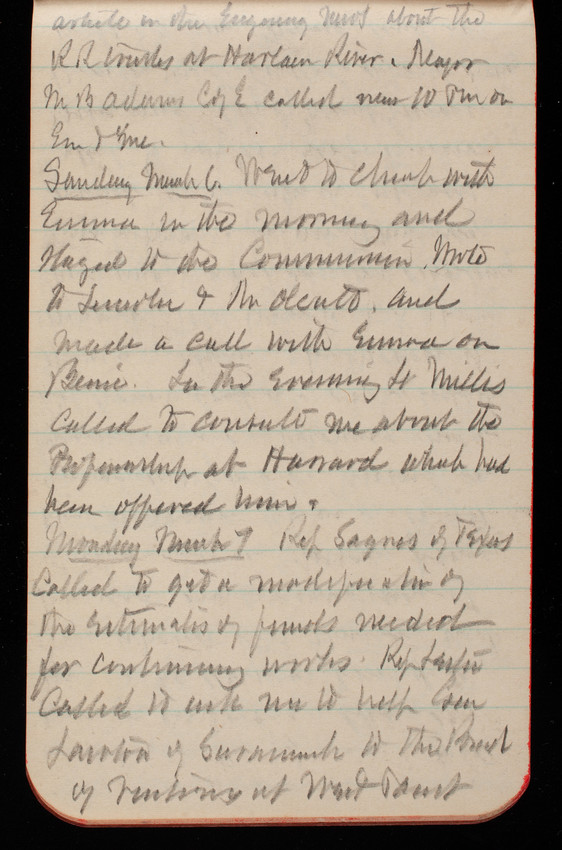 article in the Engineering News about the
R R trusts at Harlem River. Major
M B Adams C of E called new to see on
Em & me.
Sunday March 6. Went to church with
Emma in the morning and
stayed to the Communion. Wrote
to Lincoln & Mr Olcott, and
made a call with Emma on
Bessie. In the evening Lt Millis
called to consult me about the
Professorship at Harvard which had
been offered him.
Monday March 7 Rep Sayres of Texas
called to get a modification of
the estimates of funds needed
for continuing works. Rep Lester
called to ask me to help Gen
Lawton of Savannah to the Board
of Visitors at West Point